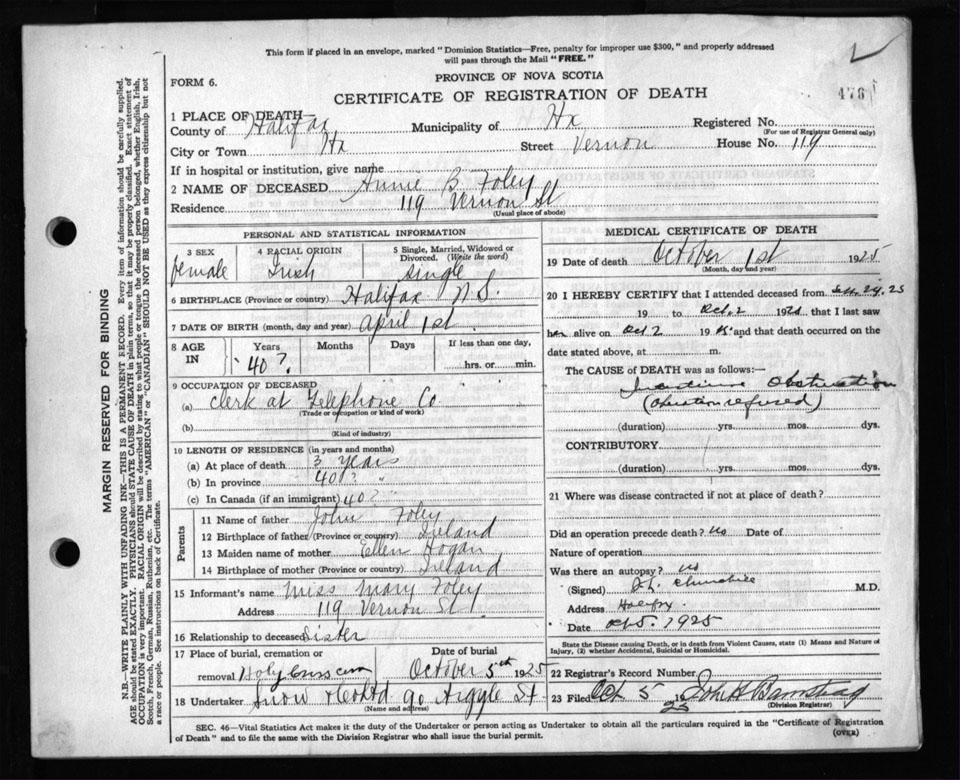 This form if placed in an envelope, marked "Dominion Statistics—Free, penalty for improper use $300," and properly addressed
will pass through the Mail "FREE."
PROVINCE OF NOVA SCOTIA
FORM 6.
CERTIFICATE OF REGISTRATION OF DEATH
478
1 PLACE OF DEATH—
County of Halifax Municipality of Hx Registered No.
(For use of Registrar General only)
City or Town Hx Street Vernon House No. 119
If in hospital or institution, give name
2 NAME OF DECEASED Annie B. Foley
Residence 119 Vernon St
(Usual place of abode)
PERSONAL AND STATISTICAL INFORMATION
3 SEX 4 RACIAL ORIGIN 5 Single, Married, Widowed or
Divorced. (Write the word)
female Irish single
6 BIRTHPLACE (Province or country) Halifax N.S.
7 DATE OF BIRTH (month, day and year) April 1st
8 AGE IN Years Months Days If less than one day,
40? hrs. or min.
9 OCCUPATION OF DECEASED
(a) clerk at Telephone Co
(Trade or occupation or kind of work)
(b)
(Kind of industry)
10 LENGTH OF RESIDENCE (in years and months)
(a) At place of death 3 years
(b) In province 40? "
(c) In Canada (if an immigrant) 40? "
Parents
11 Name of father John Foley
12 Birthplace of father (Province or country) Ireland
13 Maiden name of mother Ellen Hogan
14 Birthplace of mother (Province or country) Ireland
15 Informant's name Miss Mary Foley
Address 119 Vernon St
16 Relationship to deceased Sister
17 Place of burial, cremation or Date of burial
removal Holy Cross cem October 5th 1925
18 Undertaker Snow & Co Ltd 90 Argyle St
(Name and address)
MEDICAL CERTIFICATE OF DEATH
19 Date of death October 1st 1925
(Month, day and year)
20 I HEREBY CERTIFY that I attended deceased from 29, 25
19 to Oct. 2 192 that I last saw
her alive on Oct 2 19 and that death occurred on
date stated above, at m.
The CAUSE of DEATH was as follows:—
Intestinal Obstruction
(Operation refused)
(duration) yrs. mos. dys.
CONTRIBUTORY
(duration) yrs. mos. dys.
21 Where was disease contracted if not at place of death?
Did an operation precede death? no Date of
Nature of operation
Was there an autopsy? no
(Signed) Churchill M.D.
Address Halifax
Date Oct 5. 1925
State the Disease causing Death, or in death from Violent Causes, state (1) Means and Nature of
Injury, (2) whether Accidental, Suicidal or Homicidal.
22 Registrar's Record Number
23 Filed Oct 5 1925 John H Barnstead
(Division Registrar)
SEC. 46—Vital Statistics Act makes it the duty of the Undertaker or person acting as Undertaker to obtain all the particulars required in the "Certificate of Registration
of Death" and to file the same with the Division Registrar who shall issue the burial permit.
(OVER)
MARGIN RESERVED FOR BINDING
N.B.—WRITE PLAINLY WITH UNFADING INK—THIS IS A PERMANENT RECORD. Every item of information should be carefully supplied.
AGE should be stated EXACTLY. PHYSICIANS should STATE CAUSE OF DEATH in plain terms, so that it may be properly classified. Exact statement of
OCCUPATION is very important. RACIAL ORIGIN will be described by stating to what people or tongue the deceased person belonged, whether English, Irish,
Scotch, French, German, Russian, Ruthenian, etc. The terms "AMERICAN" or "CANADIAN" SHOULD NOT BE USED as they express citizenship but not
a race or people. See instructions on back of Certificate.